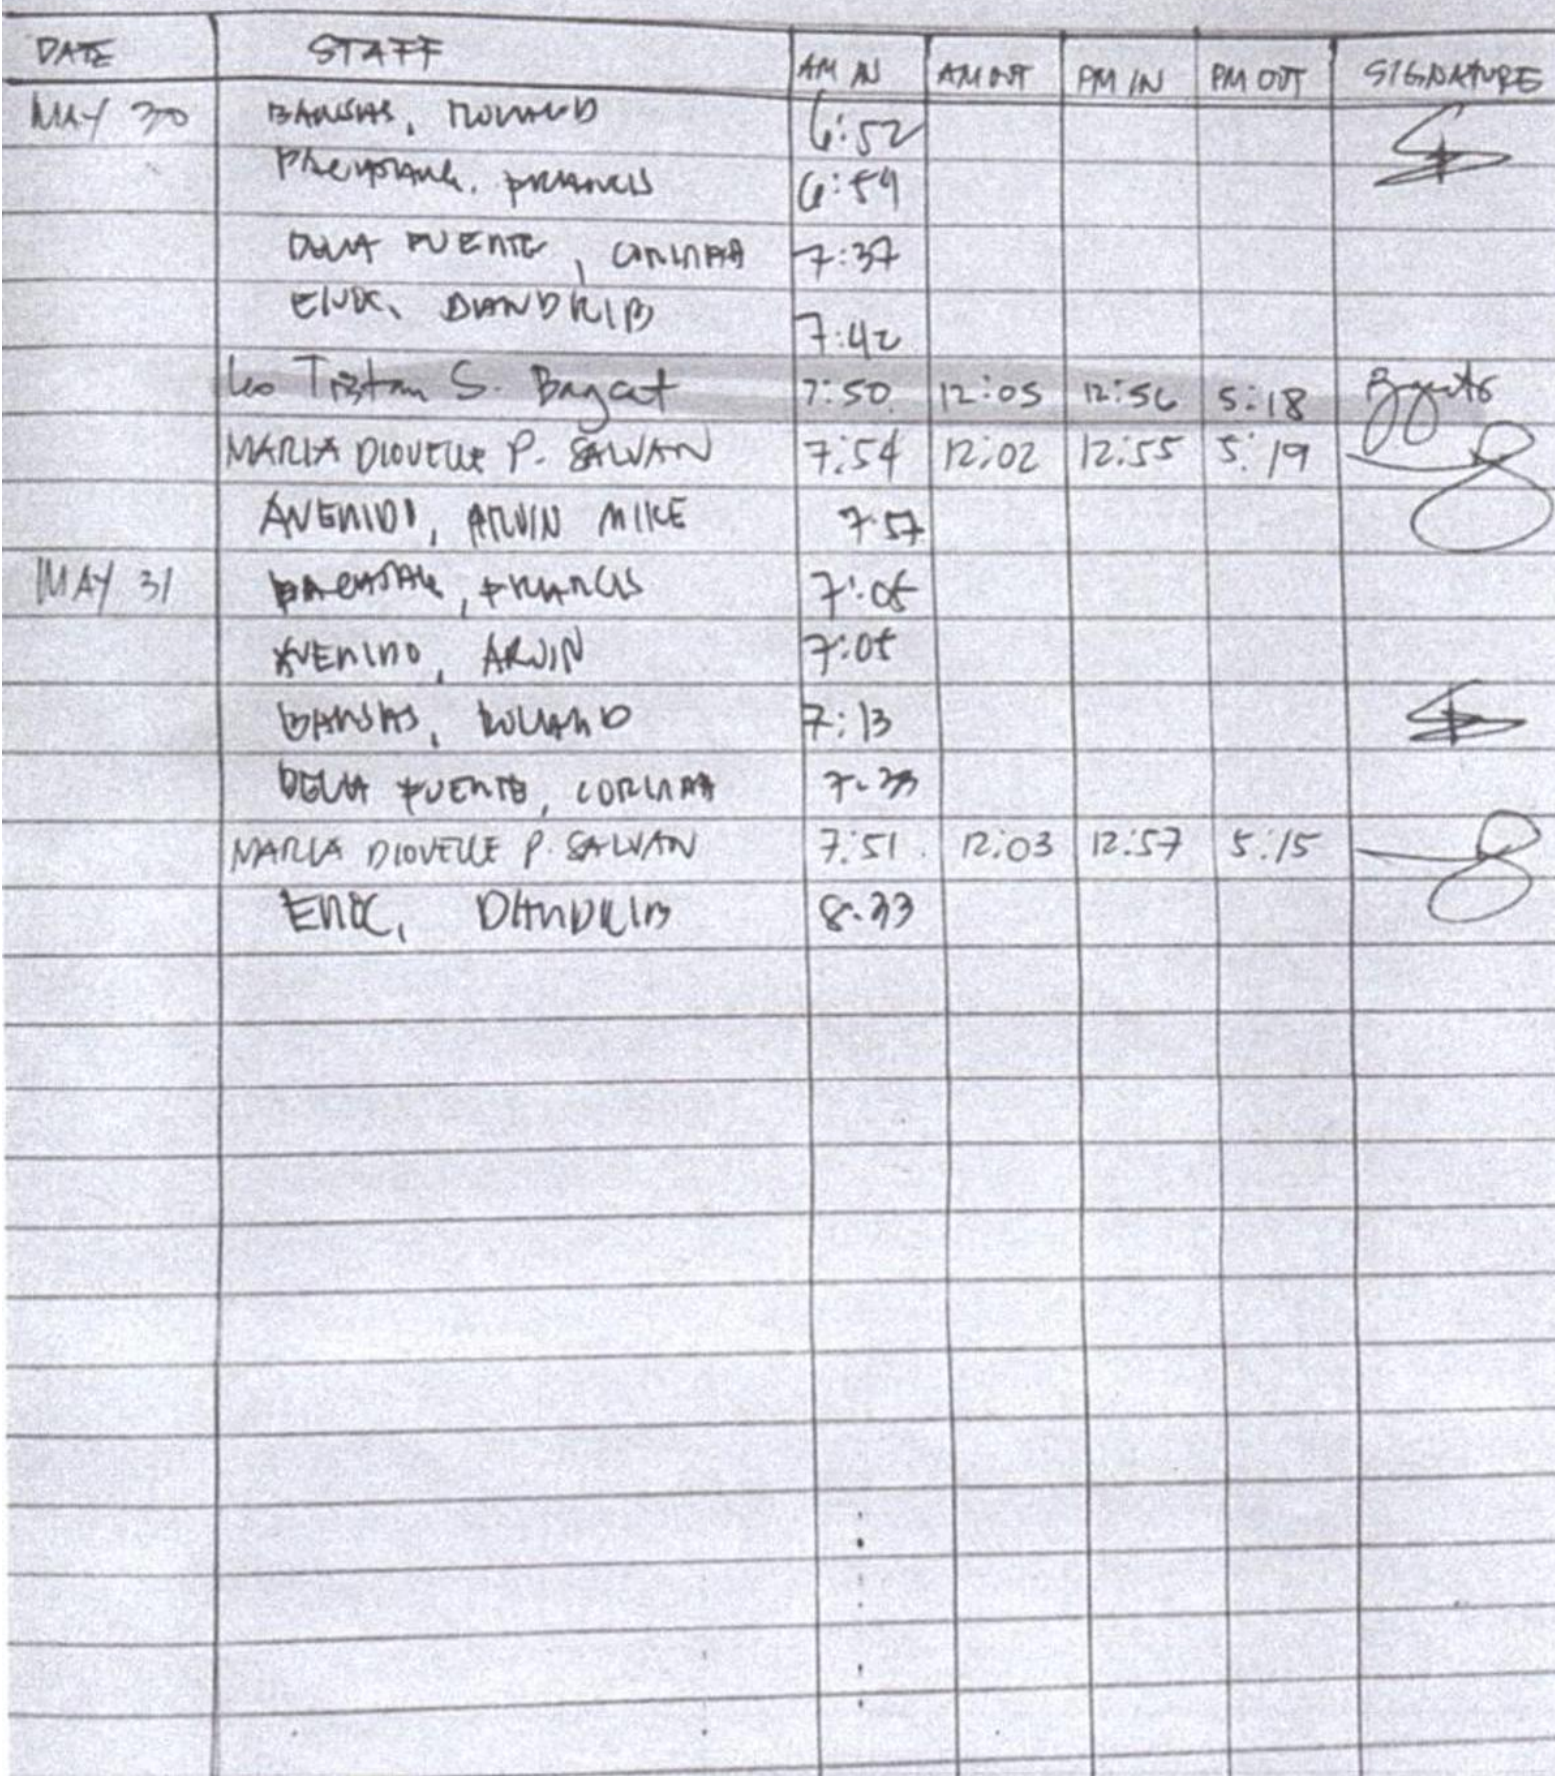 DATE STAFF AM IN AM OUT PM IN PM OUT SIGNATURE
MAY 30 BANSAS, ROLAND 6:52
FRANCIS 6:59
DELLA PUENTE, CORINNA 7:37
ENOC, 7:42
Leo Tristan S. Baycat 7:50 12:05 12:56 5:18
MARIA DIOVELLE P. SALVAN 7:54 12:02 12:55 5:19
AVENIDO, ARVIN MIKE 7:57
MAY 31 FRANCIS 7:05
AVENIDO, ARVIN 7:05
BANSAS, ROLAND 7:13
DELLA PUENTE, CORINNA 7:33
MARIA DIOVELLE P. SALVAN 7:51 12:03 12:57 5:15
ENOC, 8:33